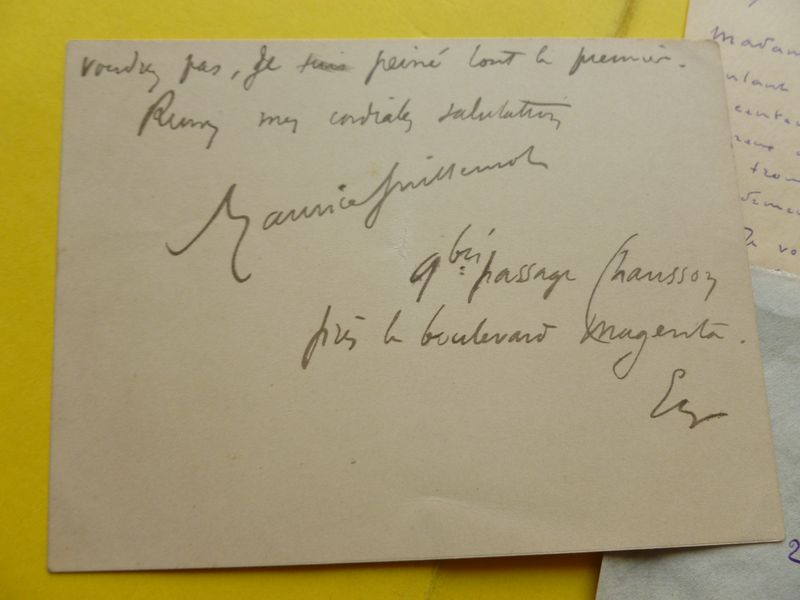 voudrez pas, Je suis peiné tout le premier.
Recevez mes cordiales salutations
Maurice Guillemot
9 bis passage Chausson
près le boulevard Magenta.
Madam